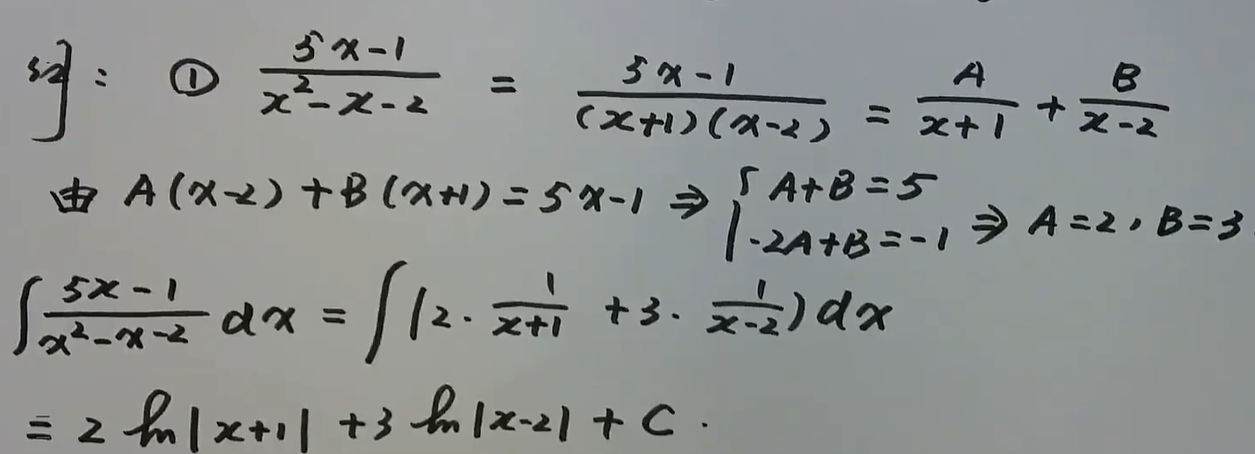 解: ① \frac{5x-1}{x^2-x-2} = \frac{5x-1}{(x+1)(x-2)} = \frac{A}{x+1} + \frac{B}{x-2}
由 A(x-2)+B(x+1)=5x-1 ⇒ \begin{cases} A+B=5 \\ -2A+B=-1 \end{cases} ⇒ A=2, B=3
\int \frac{5x-1}{x^2-x-2} dx = \int (2·\frac{1}{x+1} +3·\frac{1}{x-2}) dx
= 2 ln|x+1| +3 ln|x-2| + C.